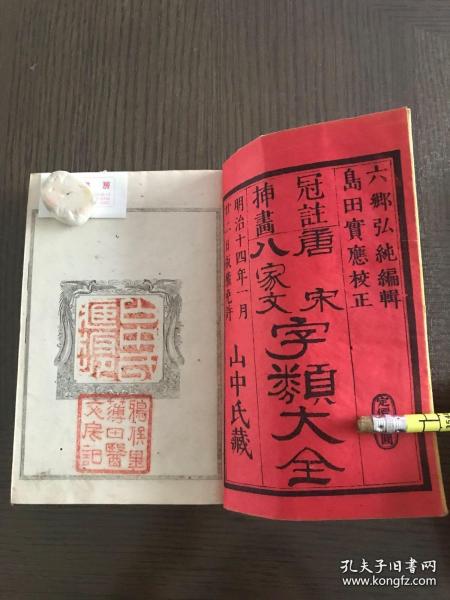 六鄉弘純編輯
島田實應校正
冠註 唐宋
挿畫 八家文
字類大全
明治十四年一月
廿二日版權免許
山中氏藏
定價
圓
房
鴉住里
簿田醫
文房記
孔夫子旧书网
www.kongfz.com